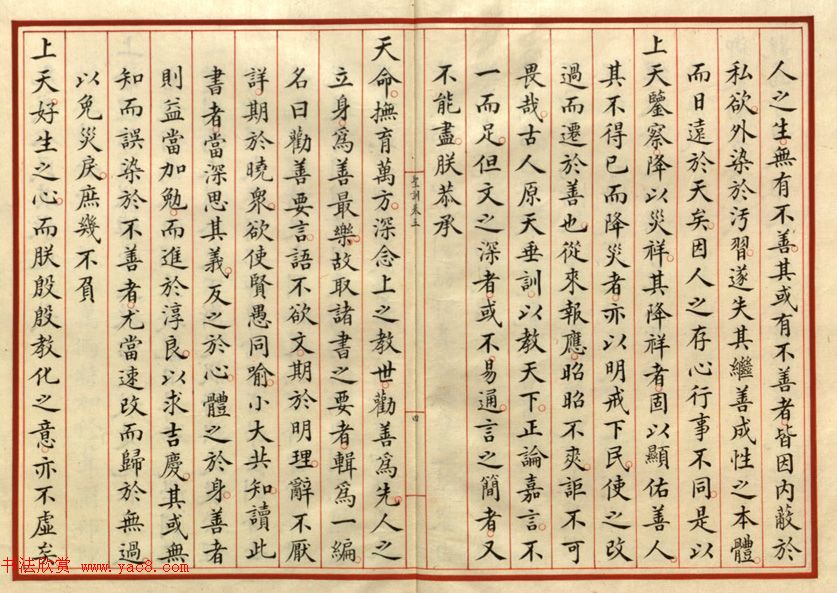 人之生無有不善其或有不善者皆因内蔽於
私欲外染於汚習遂失其繼善成性之本體
而日遠於天矣因人之存心行事不同是以
上天鑒察降以災祥其降祥者固以顯佑善人
其不得已而降災者亦以明戒下民使之改
過而遷於善也從來報應昭昭不爽詎不可
畏哉古人原天垂訓以教天下正論嘉言不
一而足但文之深者或不易通言之簡者又
不能盡朕恭承
聖訓卷三
四
天命撫育萬方深念上之教世勸善爲先人之
立身爲善最樂故取諸書之要者輯爲一編
名曰勸善要言語不欲文期於明理辭不厭
詳期於曉衆欲使賢愚同喻小大共知讀此
書者當深思其義反之於心體之於身善者
則益當加勉而進於淳良以求吉慶其或無
知而誤染於不善者尤當速改而歸於無過
以免災戾庶幾不負
上天好生之心而朕殷殷教化之意亦不虚矣
书法欣赏 www.yac8.com